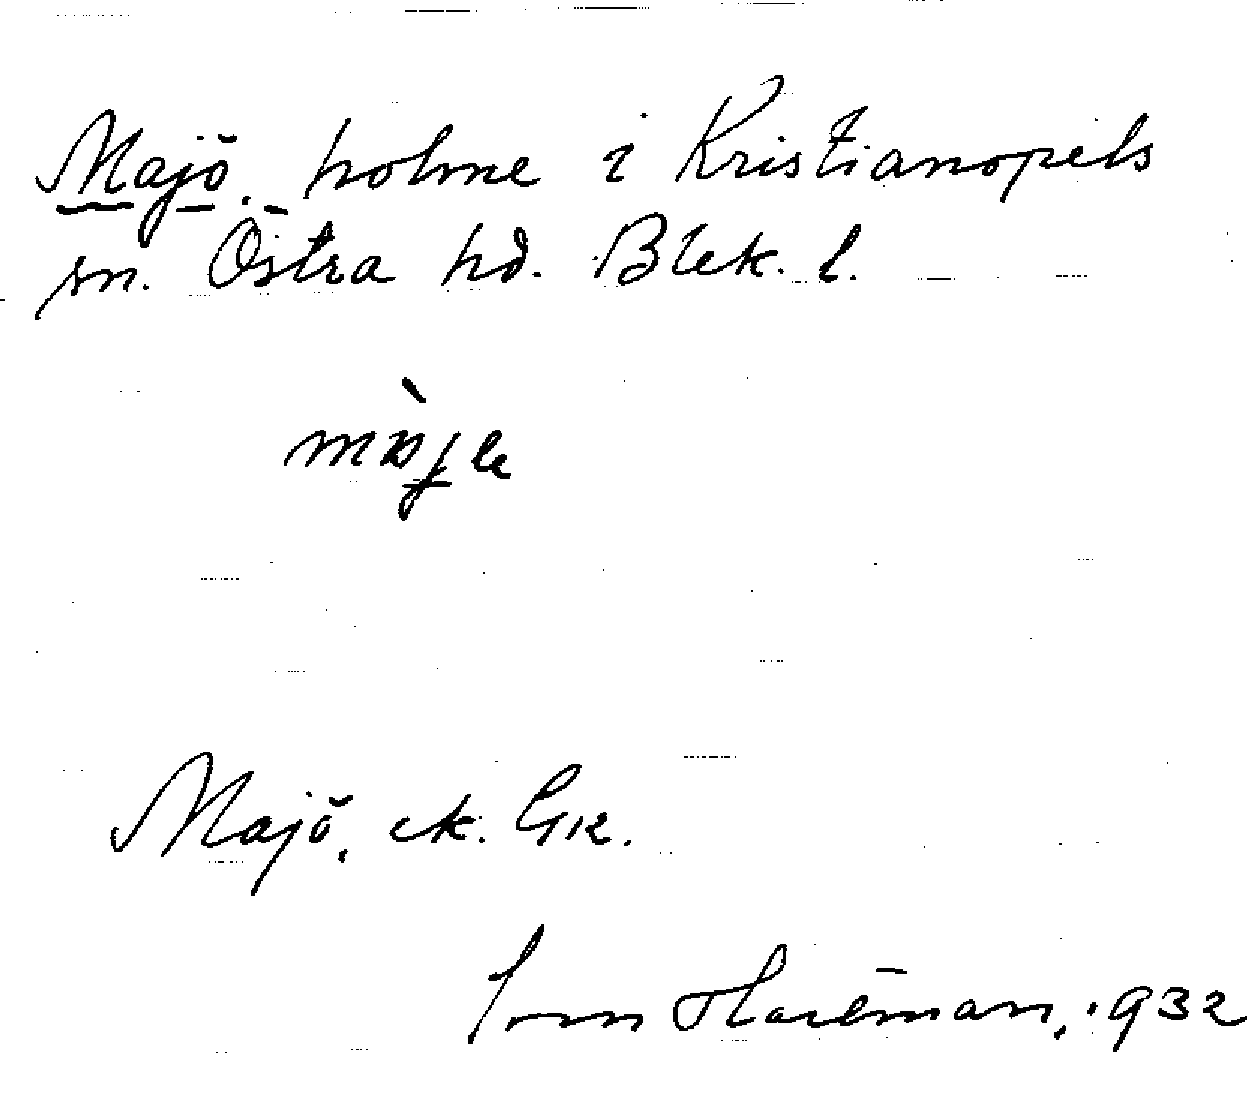 Majö, holme i Kristianopels
sn. Östra hd. Blek. l.
Majö, ek. GK.
Hartman, 1932